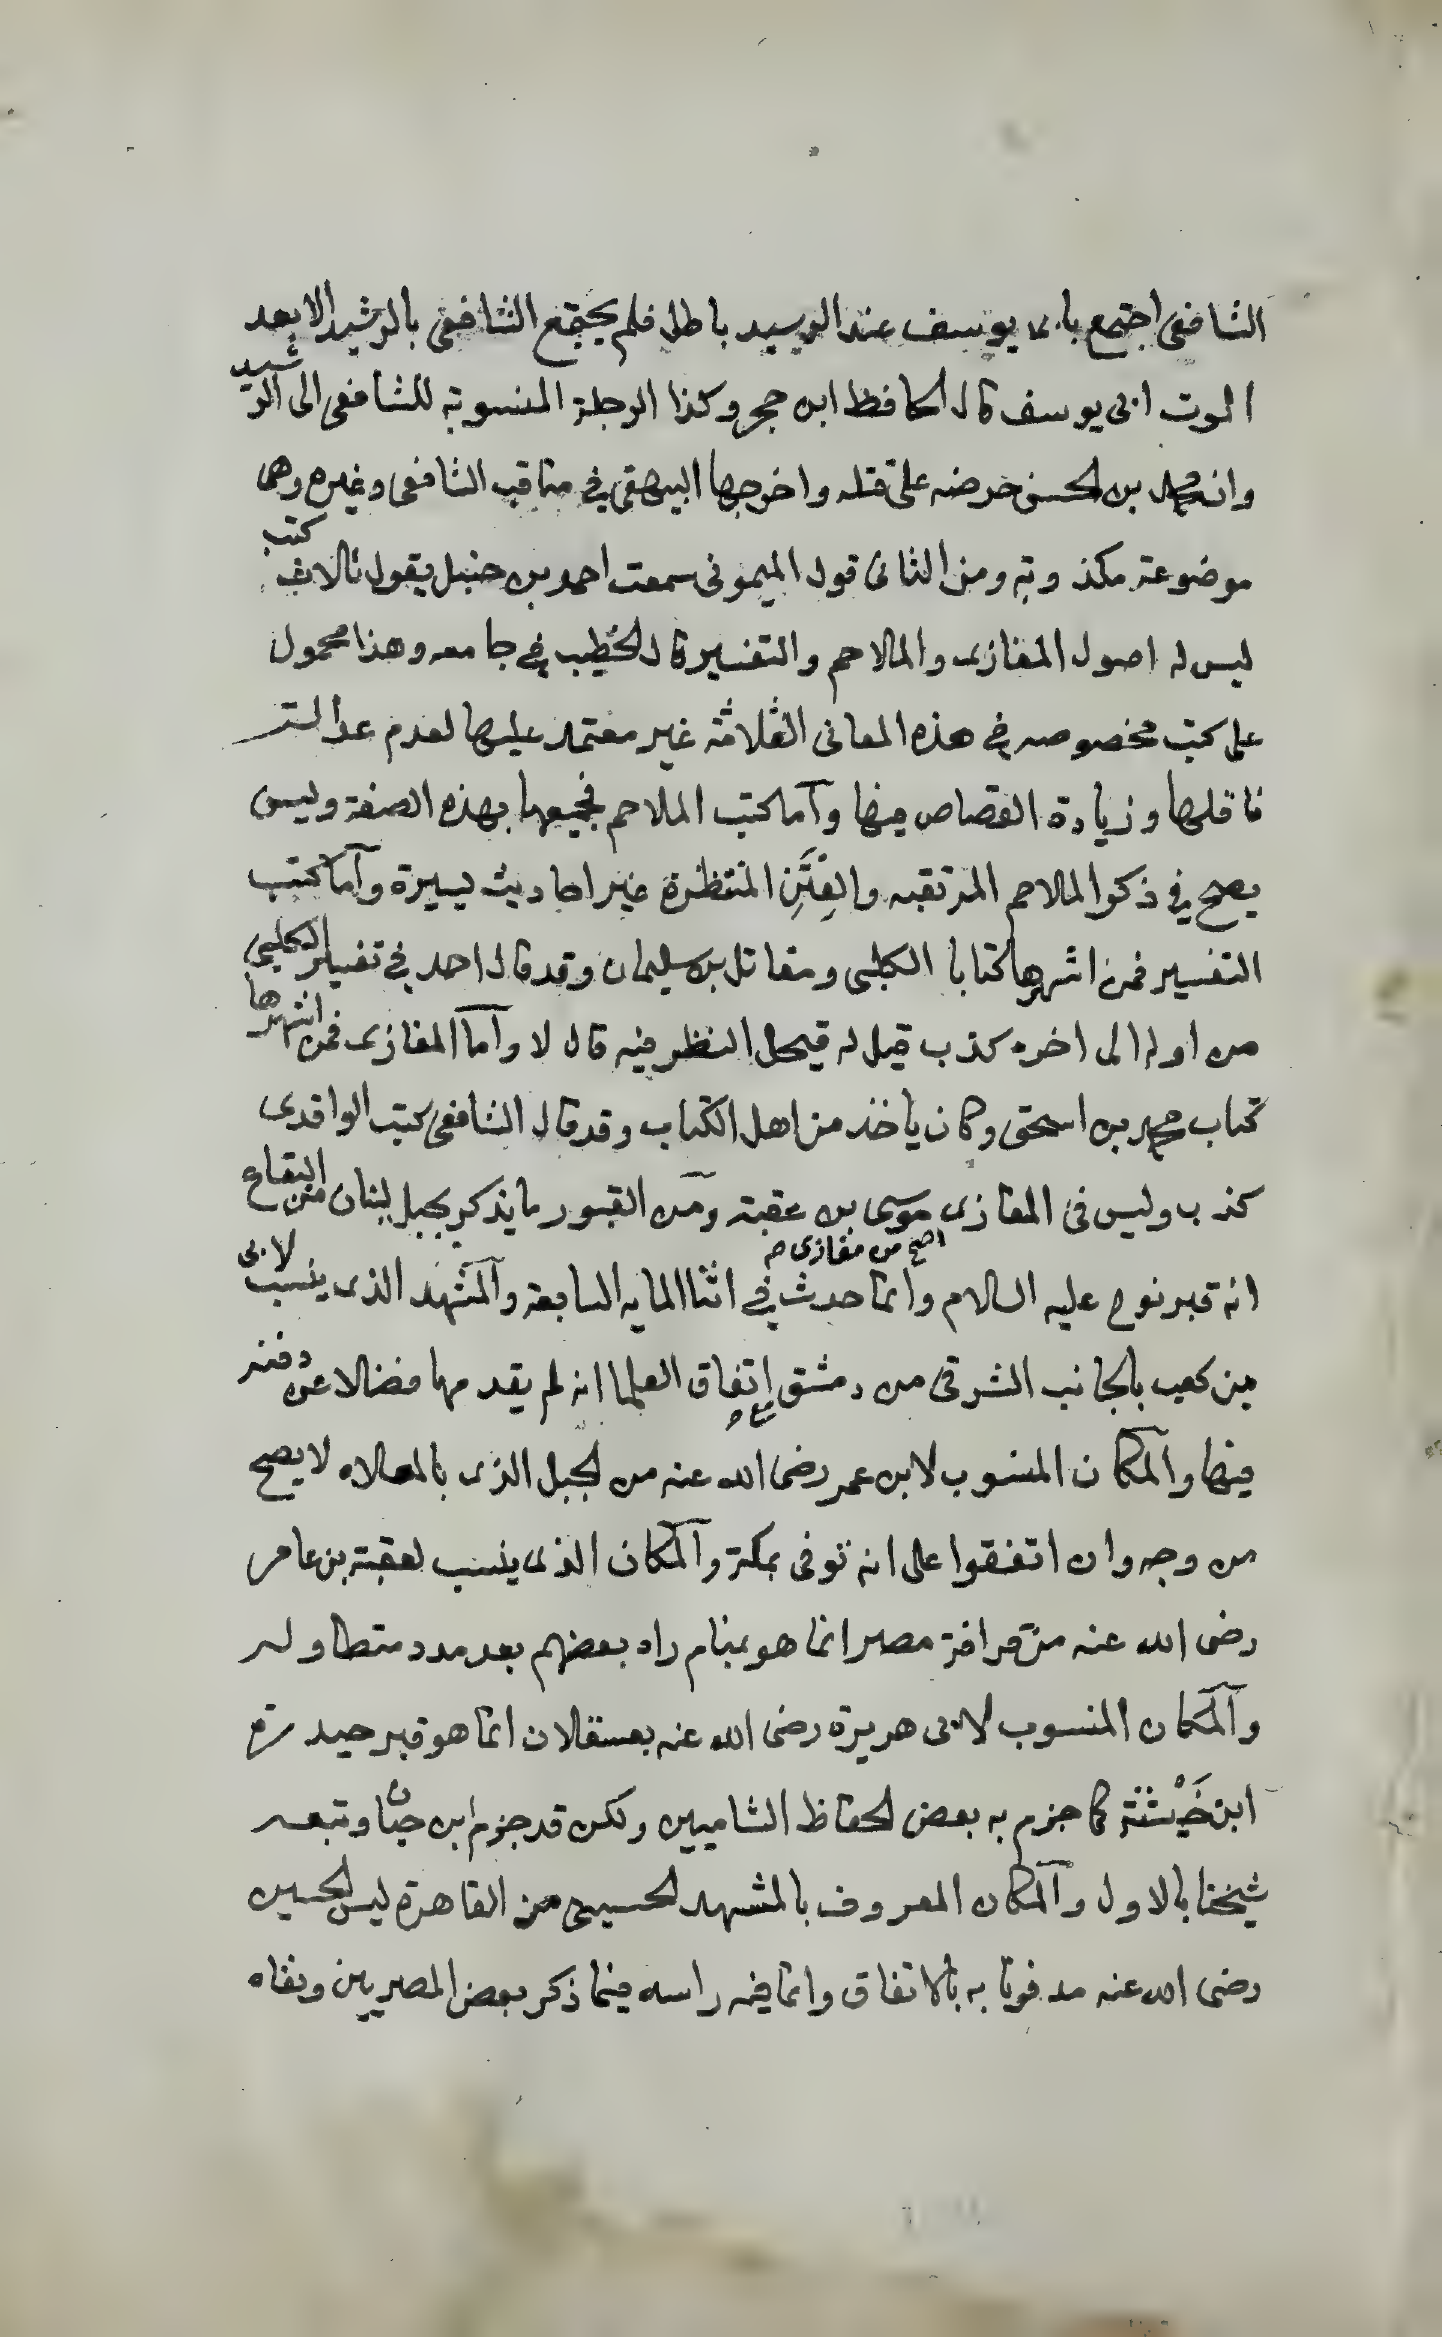 الشافعى اجتمع بابى يوسف عند الرسيد باطل فلم يجتمع الشافعى بالرشيد الا بعد
الموت ابى يوسف قال الحافظ ابن حجر وكذا الرحلة المنسوبة للشافعى الى الرشيد
وان محمد بن الحسن حرضه على قتله واخرجها البيهقى فى مناقب الشافعى وغيره وهى
موضوعة مكذوبة ومن الثانى قول الميمونى سمعت احمد بن حنبل يقول ثالاث كتب
ليس له اصول المغازى والملاحم والتفسير قال الخطيب فى جامعه وهذا محمول
على كتب مخصوصه فى هذه المعانى الثلاثة غير معتمد عليها لعدم عدالته
ناقلها وزيادة القصاص فيها وآما كتب الملاحم فجميعها بهذه الصفة وليس
يصح فى ذكر الملاحم المرتقبه والفِتَنِ المنتظرة غير احاديث يسيرة وآما كتب
التفسير فمن اشهرها كتابا الكلبى ومقاتل بن سليمان وقد قال احمد فى تفسير الكلبى
من اوله الى اخره كذب قيل له فيحل النظر فيه قال لا وآما المغازى فمن اشهرها
كتاب محمد بن اسحق وكان يأخذ من اهل الكتاب وقد قال الشافعى كتب الواقدى
كذب وليس فى المغازى موسى بن عقبة ومن القبور ما يذكر بجبل لبنان من البقاع
اصح من مغازى صح
انه قبر نوح عليه السلام وانما حدث فى اثنا المايه السابعة وآلمشهد الذى ينسب لابى
بن كعب بالجانب الشرقى من دمشق اتفاق العلما انه لم يقدمها فضالا عن دفنه
مع
فيها وآلمكان المنسوب لابن عمر رضى الله عنه من الجبل الذى بالمعلاه لا يصح
من وجه وان اتفقوا على انه توفى بمكة وآلمكان الذى ينسب لعقبة بن عامر
رضى الله عنه من قرافة مصر انما هو بمنام راه بعضهم بعد مدد متطاوله
وآلمكان المنسوب لابى هريرة رضى الله عنه بعسقلان انما هو قبر حيد رة
ابن خَيْشَنَة كما جزم به بعض الحفاظ الشاميين ولكن قد جزم ابن حبان وتبعه
شيخنا بالاول وآلمكان المعروف بالمشهد الحسينى من القاهرة ليس الحسين
رضى الله عنه مدفونا به بالاتفاق وانما فيه راسه فيما ذكر بعض المصريين ونفاه